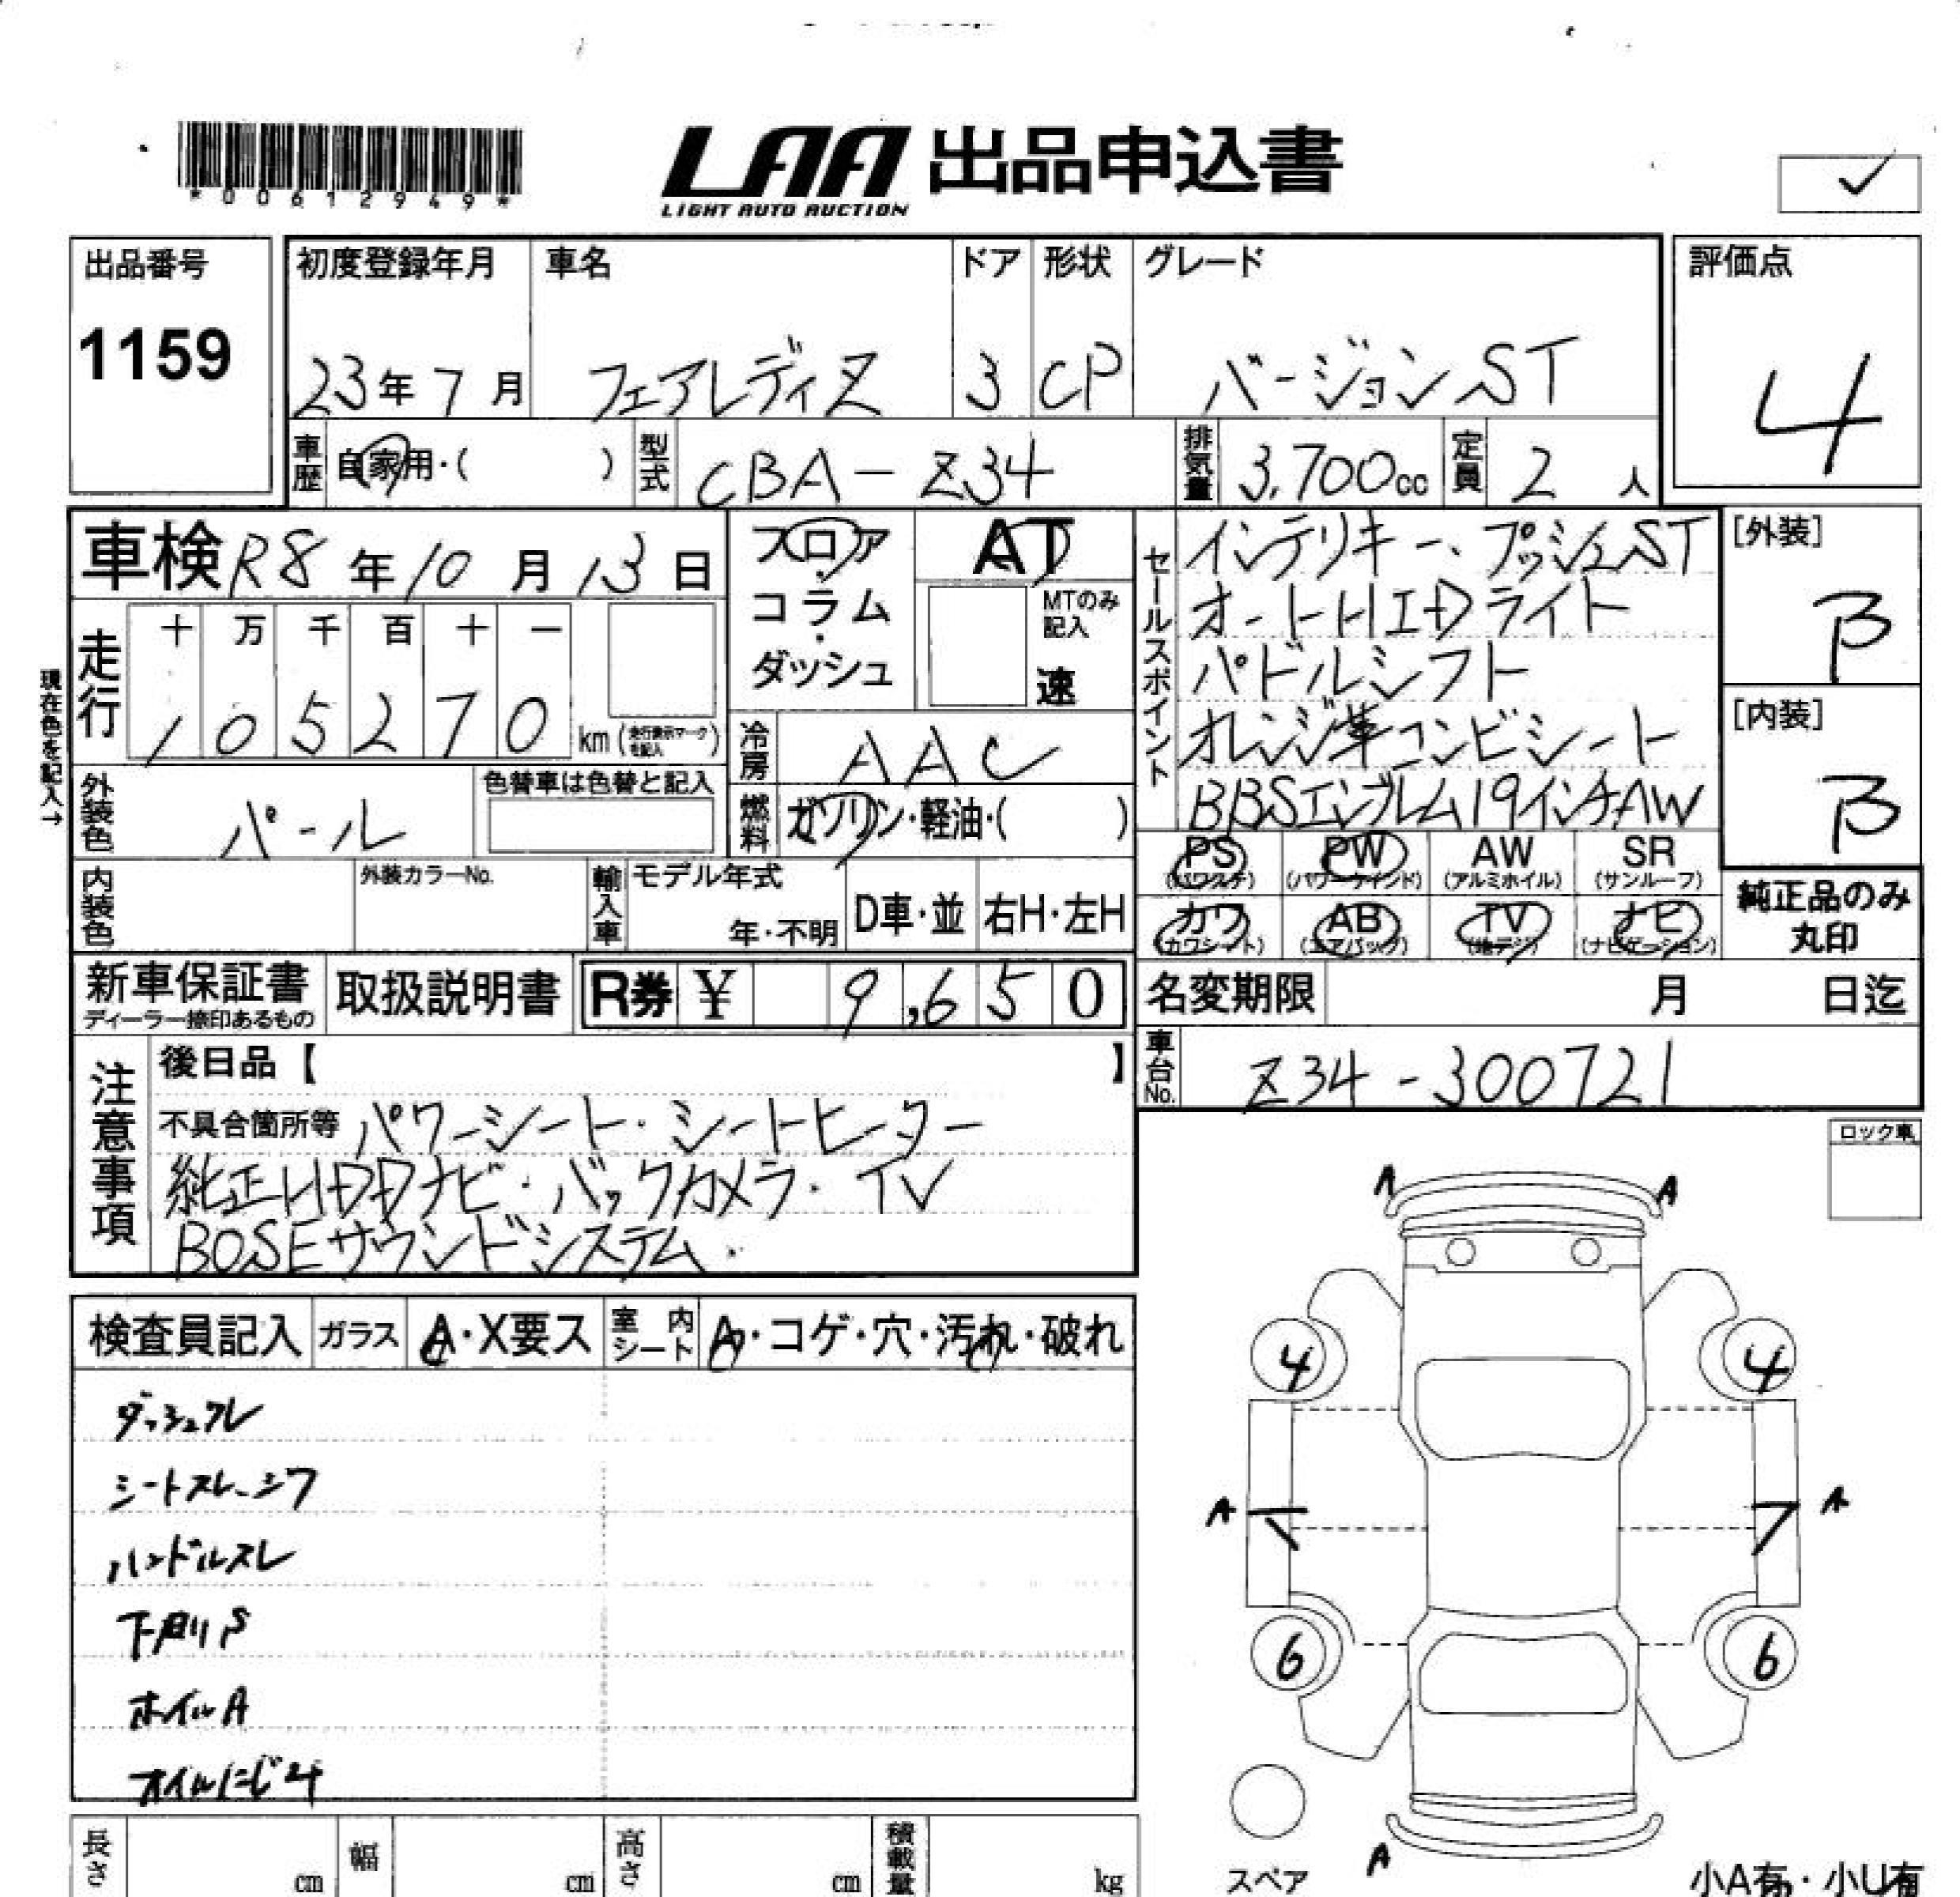 *00612949*
LAA 出品申込書
LIGHT AUTO AUCTION
出品番号 初度登録年月 車名 ドア 形状 グレード 評価点
1159 23年7月 フェアレディZ 3 CP バージョンST 4
車歴 自家用・( ) 型式 CBA-Z34 排気量 3,700cc 定員 2人
車検 R8年10月13日 フロア・コラム・ダッシュ AT MTのみ記入 速
セールスポイント インテリキー、プッシュST
オートHIDライト
パドルシフト
オレンジ革コンビシート
BBSエンブレム19インチAW
[外装] B
[内装] B
現在色を記入→
走行 十 万 千 百 十 一
105270 km (走行表示マークを記入)
冷房 AAC
外装色 パール 色替車は色替と記入 燃料 ガソリン・軽油・( )
PS (パワステ) PW (パワーウインド) AW (アルミホイル) SR (サンルーフ)
カワ (カワシート) AB (エアバッグ) TV (地デジ) ナビ (ナビゲーション)
純正品のみ丸印
内装色 外装カラーNo. 輸入車 モデル年式 年・不明 D車・並 右H・左H
新車保証書 ディーラー捺印あるもの 取扱説明書 R券 ¥ 9,650 名変期限 月 日迄
車台No. Z34-300721
注意事項 後日品【 】
不具合箇所等 パワーシート・シートヒーター
純正HDDナビ・バックカメラ・TV
BOSEサウンドシステム.
ロック車
検査員記入 ガラス A・X要ス 室内シート A・コゲ・穴・汚れ・破れ
ダッシュワレ
シートスレ、シワ
ハンドルスレ
下廻りS
ホイルA
オイルにじみ
A A
4 4
A A
6 6
A
スペア
小A有・小U有
長さ cm 幅 cm 高さ cm 積載量 kg